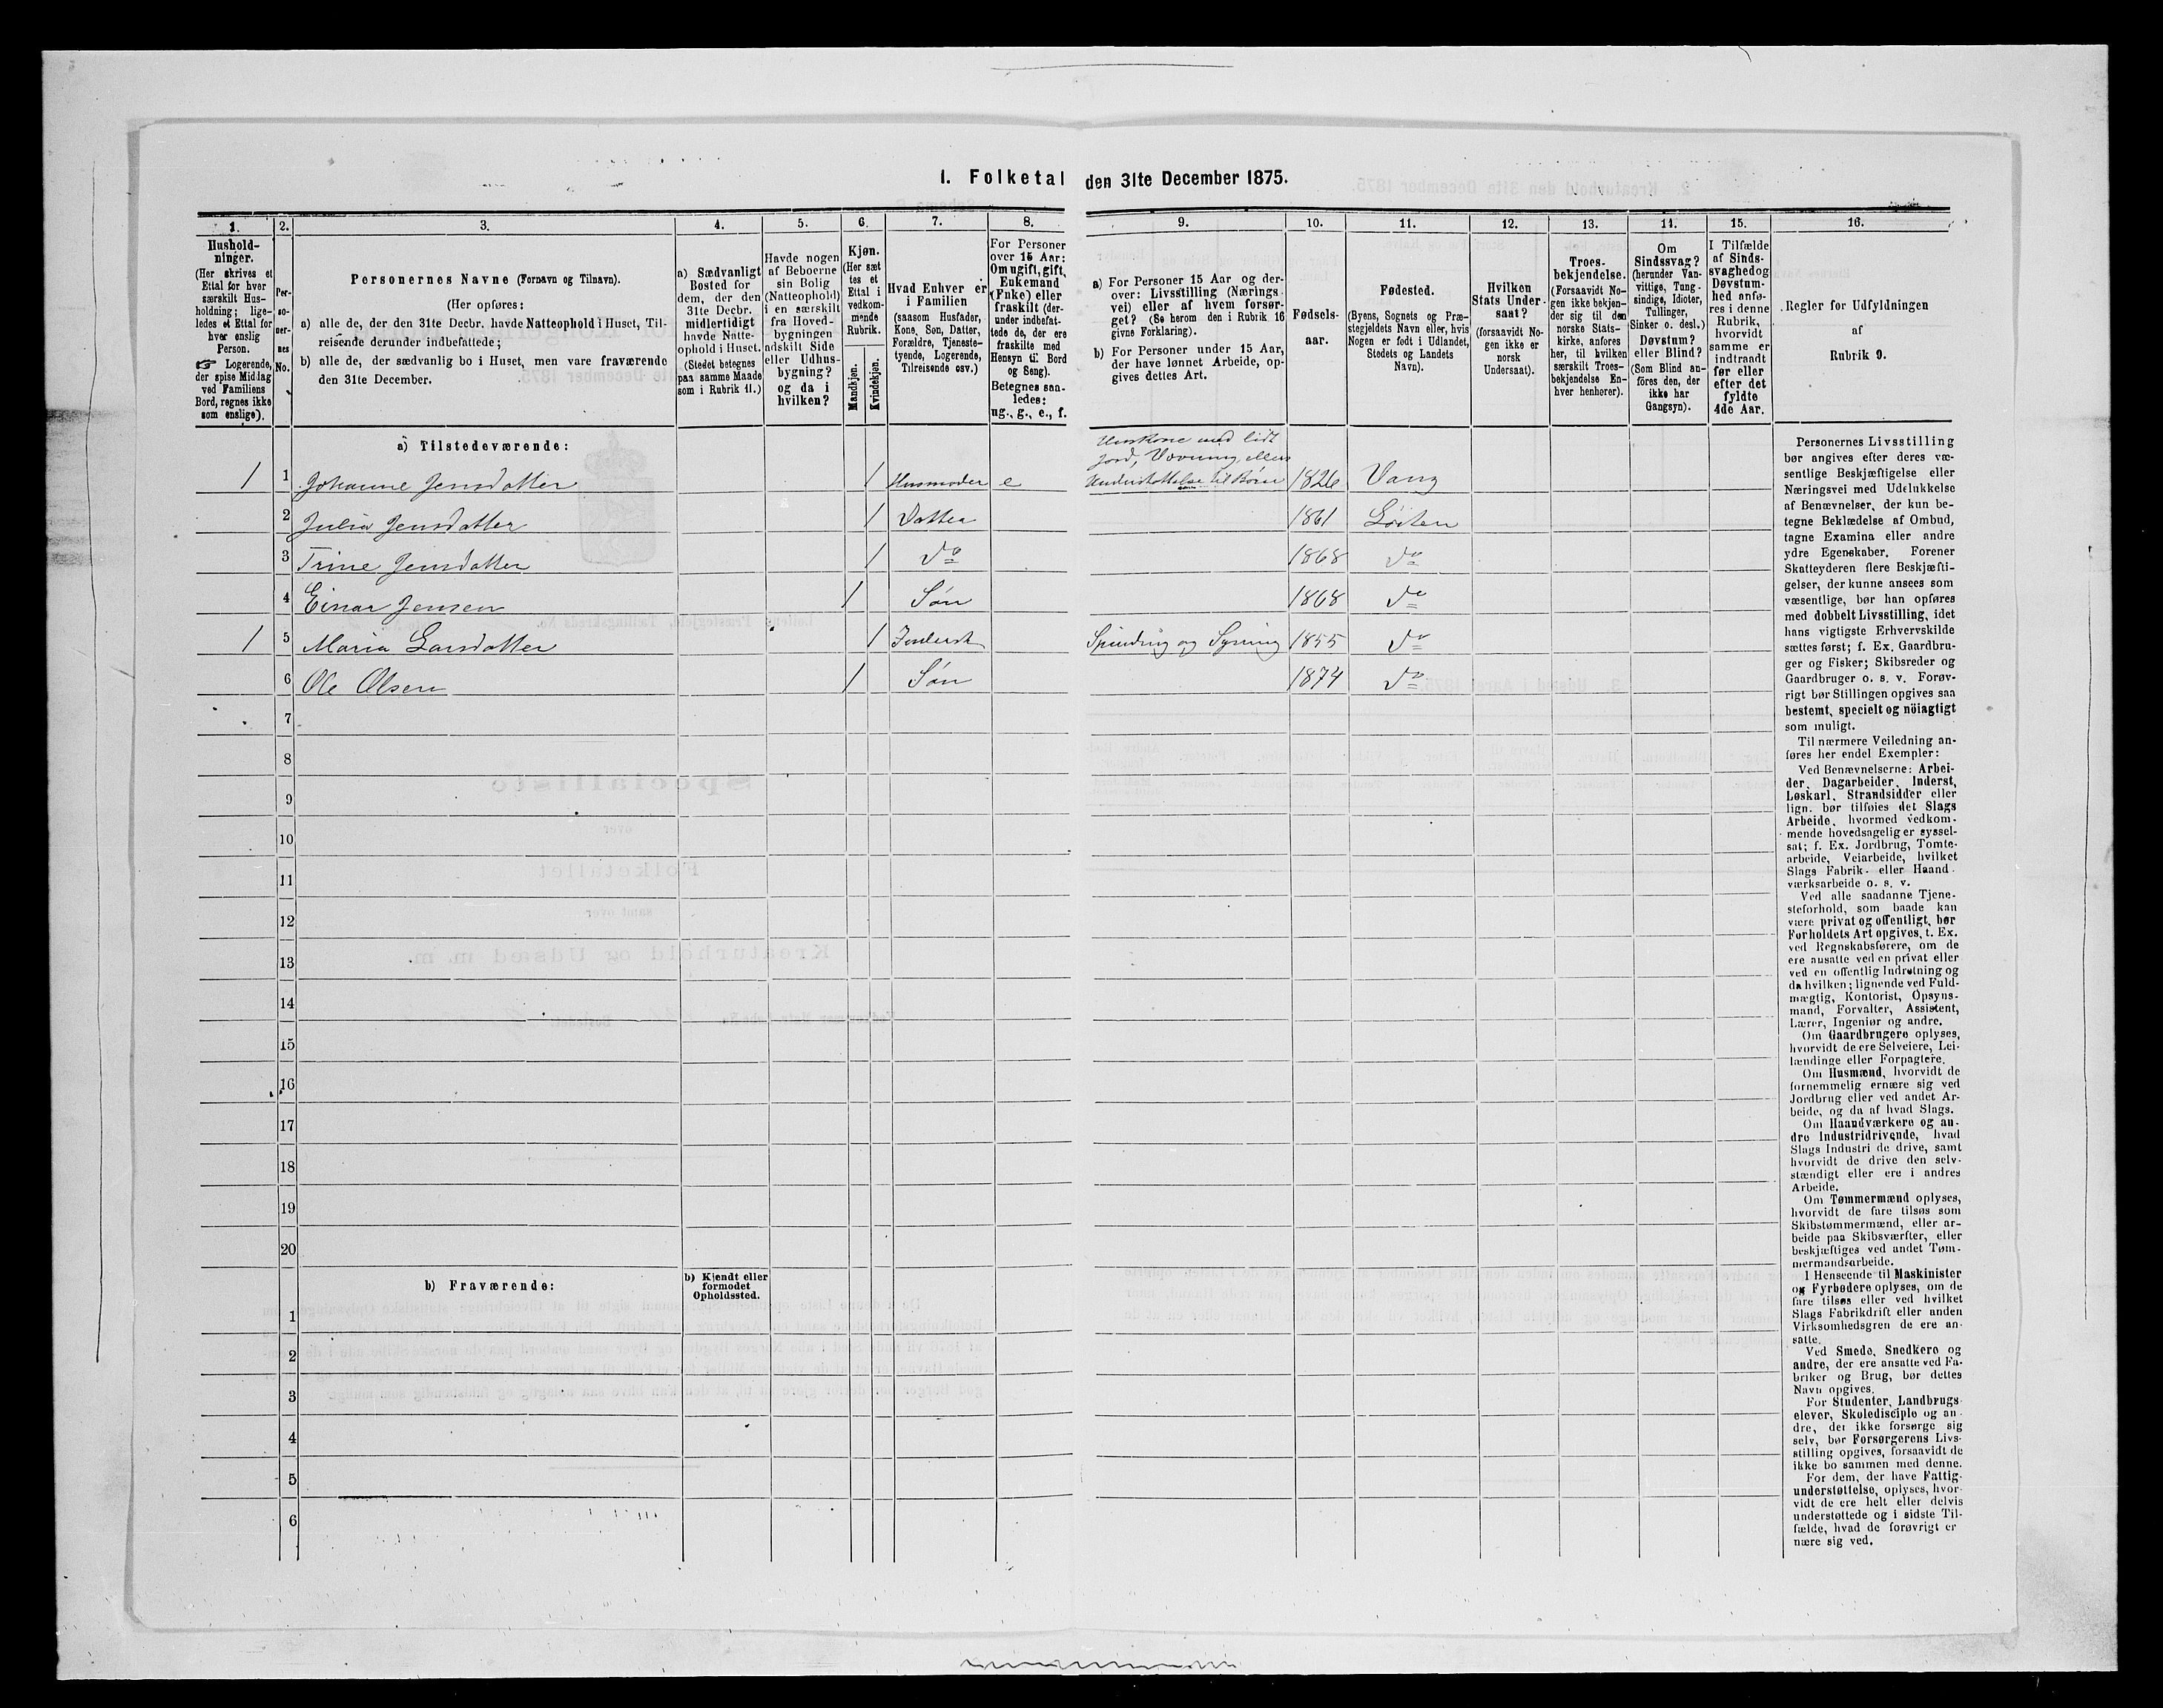 1. Folketal den 31te December 1875.
1. 2. 3. 4. 5. 6. 7. 8. 9. 10. 11. 12. 13. 14. 15. 16.
Hushold-
ninger.
(Her skrives et
Ettal for hver
særskilt Hus-
holdning; lige-
ledes et Ettal for
hver enslig
Person.
☞ Logerende,
der spise Middag
ved Familiens
Bord, regnes ikke
som enslige).
Per-
so-
ner-
nes
No.
Personernes Navne (Fornavn og Tilnavn).
(Her opføres:
a) alle de, der den 31te Decbr. havde Natteophold i Huset, Til-
reisende derunder indbefattede;
b) alle de, der sædvanlig bo i Huset, men vare fraværende
den 31te December.
a) Sædvanligt
Bosted for
dem, der den
31te Decbr.
midlertidigt
havde Natte-
ophold i Huset.
(Stedet betegnes
paa samme Maade
som i Rubrik 11.)
Havde nogen
af Beboerne
sin Bolig
(Natteophold)
i en særskilt
fra Hoved-
bygningen
adskilt Side
eller Udhus-
bygning?
og da i
hvilken?
Kjøn.
(Her sæt
tes et
Ettal i
vedkom-
mende
Rubrik.
Mandkjøn.
Kvindekjøn.
Hvad Enhver er
i Familien
(saasom Husfader,
Kone, Søn, Datter,
Forældre, Tjeneste-
tyende, Logerende,
Tilreisende osv.)
For Personer
over 15 Aar:
Om ugift, gift,
Enkemand
(Enke) eller
fraskilt (der-
under indbefat-
tede de, der ere
fraskilte med
Hensyn til Bord
og Seng).
Betegnes saa-
ledes:
ug., g., e., f.
a) For Personer 15 Aar og der-
over: Livsstilling (Nærings
vei) eller af hvem forsør-
get? (Se herom den i Rubrik 16
givne Forklaring).
b) For Personer under 15 Aar,
der have lønnet Arbeide, op-
gives dettes Art.
Fødsels-
aar.
Fødested.
(Byens, Sognets og Præ-
stegjeldets Navn eller, hvis
Nogen er født i Udlandet,
Stedets og Landets
Navn).
Hvilken
Stats Under-
saat?
(forsaavidt No-
gen ikke er
norsk
Undersaat).
Troes-
bekjendelse.
(Forsaavidt No-
gen ikke bekjen-
der sig til den
norske Stats-
kirke, anføres
her, til hvilken
særskilt Troes-
bekjendelse En-
hver henhører).
Om
Sindssvag?
(herunder Van-
vittige, Tung-
sindige, Idioter,
Tullinger,
Sinker o. desl.)
Døvstum?
eller Blind?
(Som Blind an-
føres den, der
ikke har
Gangsyn).
I Tilfælde
af Sinds-
svaghed og
Døvstum-
hed anfø-
res i denne
Rubrik,
hvorvidt
samme er
indtraadt
før eller
efter det
fyldte
4de Aar.
Regler for Udfyldningen
af
Rubrik 9.
a) Tilstedeværende:
1 1 Johanne Jensdatter 1 Husmoder e Huskone med lidt
Jord, Vævning, ellers
Understøttelse til Børn 1826 Vang
2 Julia Jensdatter 1 Datter 1861 Löiten
3 Trine Jensdatter 1 do 1868 do
4 Einar Jensen 1 Søn 1868 do
1 5 Maria Larsdatter 1 Inderst Spinding og Syning 1855 do
6 Ole Olsen 1 Søn 1874 do
7
8
9
10
11
12
13
14
15
16
17
18
19
20
b) Fraværende:
b) Kjendt eller
formodet
Opholdssted.
1
2
3
4
5
6
Personernes Livsstilling
bør angives efter deres væ-
sentlige Beskjæftigelse eller
Næringsvei med Udelukkelse
af Benævnelser, der kun be-
tegne Beklædelse af Ombud,
tagne Examina eller andre
ydre Egenskaber. Forener
Skatteyderen flere Beskjæfti-
gelser, der kunne ansees som
væsentlige, bør han opføres
med dobbelt Livsstilling, idet
hans vigtigste Erhvervskilde
sættes først; f. Ex. Gaardbru-
ger og Fisker; Skibsreder og
Gaardbruger o. s. v. Forøv-
rigt bør Stillingen opgives saa
bestemt, specielt og nöiagtigt
som muligt.
Til nærmere Veiledning an-
føres her endel Exempler:
Ved Benævnelserne: Arbei-
der, Dagarbeider, Inderst,
Løskarl, Strandsidder eller
lign. bør tilføies det Slags
Arbeide, hvormed vedkom-
mende hovedsagelig er syssel-
sat; f. Ex. Jordbrug, Tomte-
arbeide, Veiarbeide, hvilket
Slags Fabrik- eller Haand-
værksarbeide o. s. v.
Ved alle saadanne Tjene-
steforhold, som baade kan
være privat og offentligt, bør
Forholdets Art opgives, t. Ex.
ved Regnskabsførere, om de
ere ansatte ved en privat eller
ved en offentlig Indretning og
da hvilken; lignende ved Fuld-
mægtig, Kontorist, Opsyns-
mand, Forvalter, Assistent,
Lærer, Ingeniør og andre.
Om Gaardbrugere oplyses,
hvorvidt de ere Selveiere, Lei-
lændinge eller Forpagtere.
Om Husmænd, hvorvidt de
fornemmelig ernære sig ved
Jordbrug eller ved andet Ar-
beide, og da af hvad Slags.
Om Haandværkere og an-
dre Industridrivende, hvad
Slags Industri de drive, samt
hvorvidt de drive den selv-
stændigt eller ere i andres
Arbeide.
Om Tømmermænd oplyses,
hvorvidt de fare tilsøs som
Skibstømmermænd, eller ar-
beide paa Skibsværfter, eller
beskjæftiges ved andet Tøm-
mermandsarbeide.
I Henseende til Maskinister
og Fyrbødere oplyses, om de
fare tilsøs eller ved hvilket
Slags Fabrikdrift eller anden
Virksomhedsgren de ere an-
satte.
Ved Smede, Snedkere og
andre, der ere ansatte ved Fa-
briker og Brug, bør dettes
Navn opgives.
For Studenter, Landbrugs-
elever, Skoledisciple og an-
dre, der ikke forsørge sig
selv, bør Forsørgerens Livs-
stilling opgives, forsaavidt de
ikke bo sammen med denne.
For dem, der have Fattig-
understøttelse, oplyses, hvor-
vidt de ere helt eller delvis
understøttede og i sidste Til-
fælde, hvad de forøvrigt er
nære sig ved.